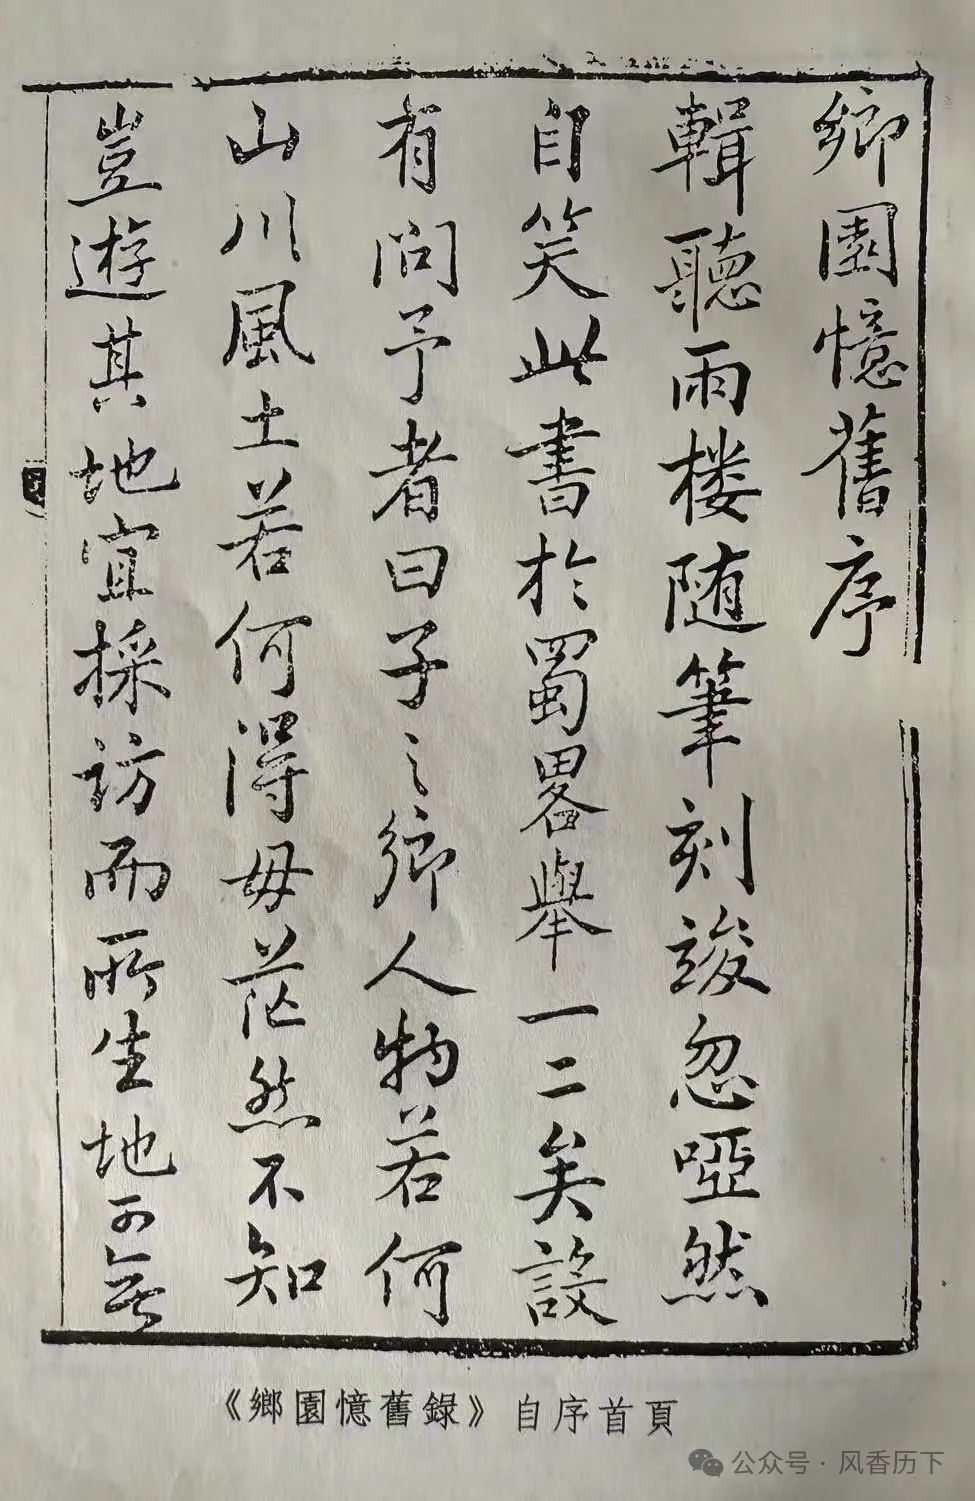 鄉園憶舊序
輯聽雨楼随筆刻竣忽啞然
自笑此書於蜀畧舉一二矣設
有問予者曰子之鄉人物若何
山川風土若何得毋茫然不知
豈遊其地宜採訪而所生地可無
《鄉園憶舊録》自序首頁
公众号·风香历下